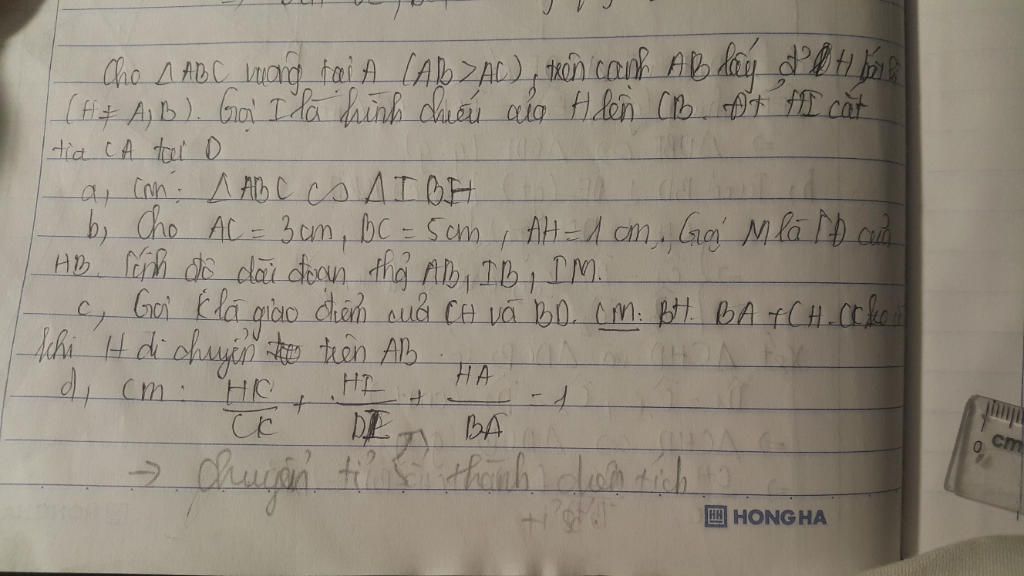 Cho ΔABC vuông tại A (AB > AC), trên cạnh AB lấy đ² H
(H ≠ A, B). Gọi I là hình chiếu của H lên CB. Đt HI cắt
tia CA tại D
a, Cm: ΔABC ∽ ΔIBH
b, Cho AC = 3cm, BC = 5cm, AH = 1cm, Gọi M là TĐ của
HB. Tính độ dài đoạn thg AB, IB, IM.
c, Gọi K là giao điểm của CH và BD. CM: BH. BA + CH. CK
khi H di chuyển trên AB
d, Cm: HK/CK + HI/DI + HA/BA = 1
→ chuyển tỉ số thành diện tích
HH HONG HA
0
1
cm